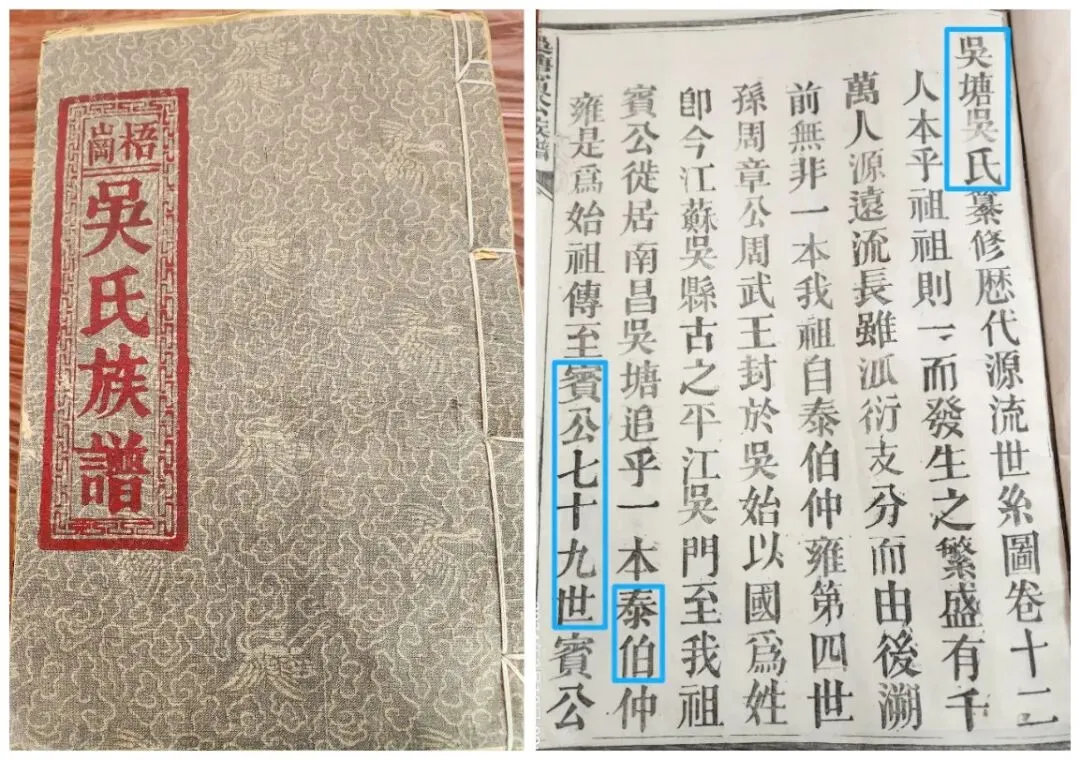 梧崗
吳氏族譜
吳塘吳氏纂修歷代源流世系圖卷十二
人本乎祖祖則一而發生之繁盛有千
萬人源遠流長雖泒衍支分而由後溯
前無非一本我祖自泰伯仲雍第四世
孫周章公周武王封於吳始以國爲姓
卽今江蘇吳縣古之平江吳門至我祖
賓公徙居南昌吳塘追乎一本泰伯仲
雍是爲始祖傳至賓公七十九世賓公